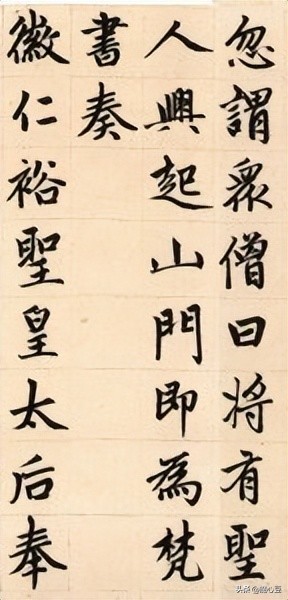 忽謂衆僧曰将有聖
人興起山門即為梵
書奏
徽仁裕聖皇太后奉
头条@融心荳